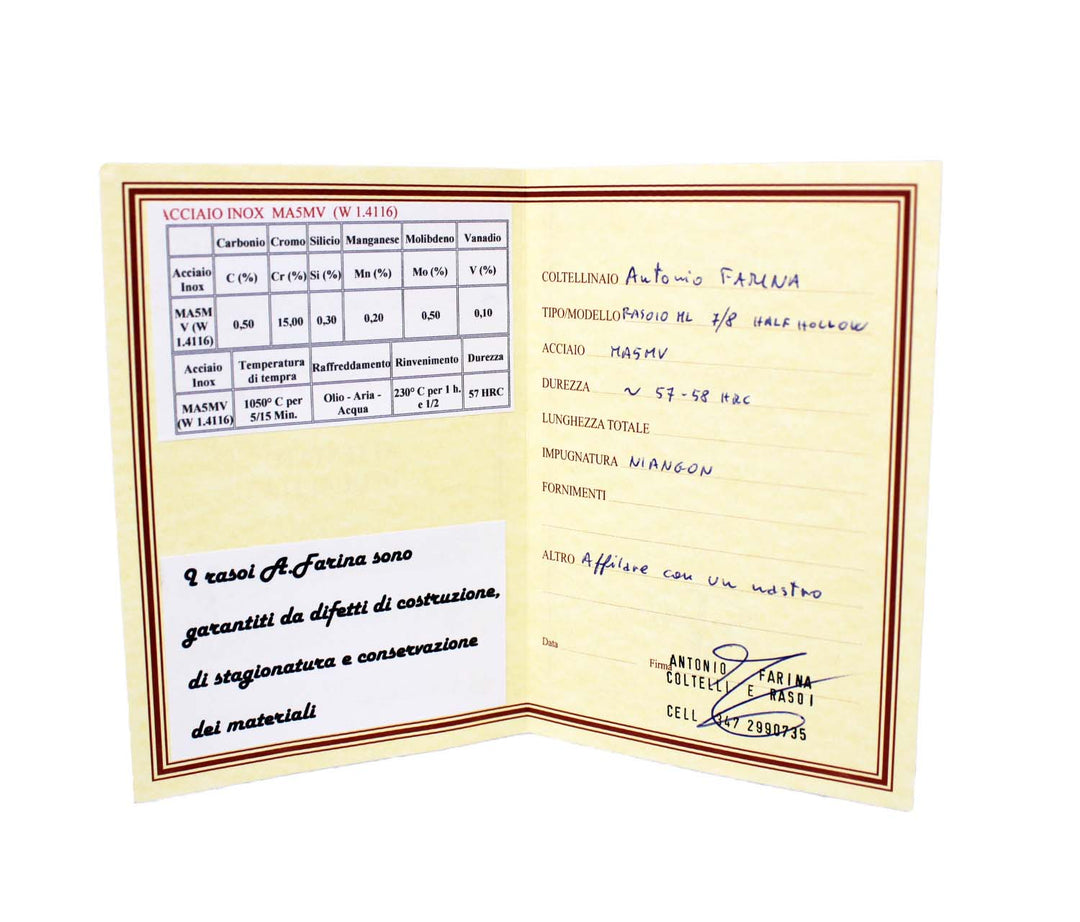 ACCIAIO INOX MA5MV (W 1.4116)
Carbonio Cromo Silicio Manganese Molibdeno Vanadio
Acciaio Inox C (%) Cr (%) Si (%) Mn (%) Mo (%) V (%)
MA5M V (W 1.4116) 0,50 15,00 0,30 0,20 0,50 0,10
Acciaio Inox Temperatura di tempra Raffreddamento Rinvenimento Durezza
MA5MV (W 1.4116) 1050° C per 5/15 Min. Olio - Aria - Acqua 230° C per 1 h. e 1/2 57 HRC
I rasoi A.Farina sono
garantiti da difetti di costruzione,
di stagionatura e conservazione
dei materiali
COLTELLINAIO Antonio FARINA
TIPO/MODELLO RASOIO ML 7/8 HALF HOLLOW
ACCIAIO MA5MV
DUREZZA ~ 57-58 HRC
LUNGHEZZA TOTALE
IMPUGNATURA NIANGON
FORNIMENTI
ALTRO Affilare con un nastro
Data
Firma ANTONIO FARINA
COLTELLI E RASOI
CELL 347 2990735